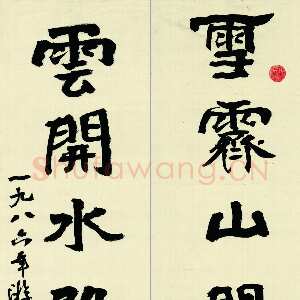 雪霽山門
雲開水
一九八六年
Shufawang.CN